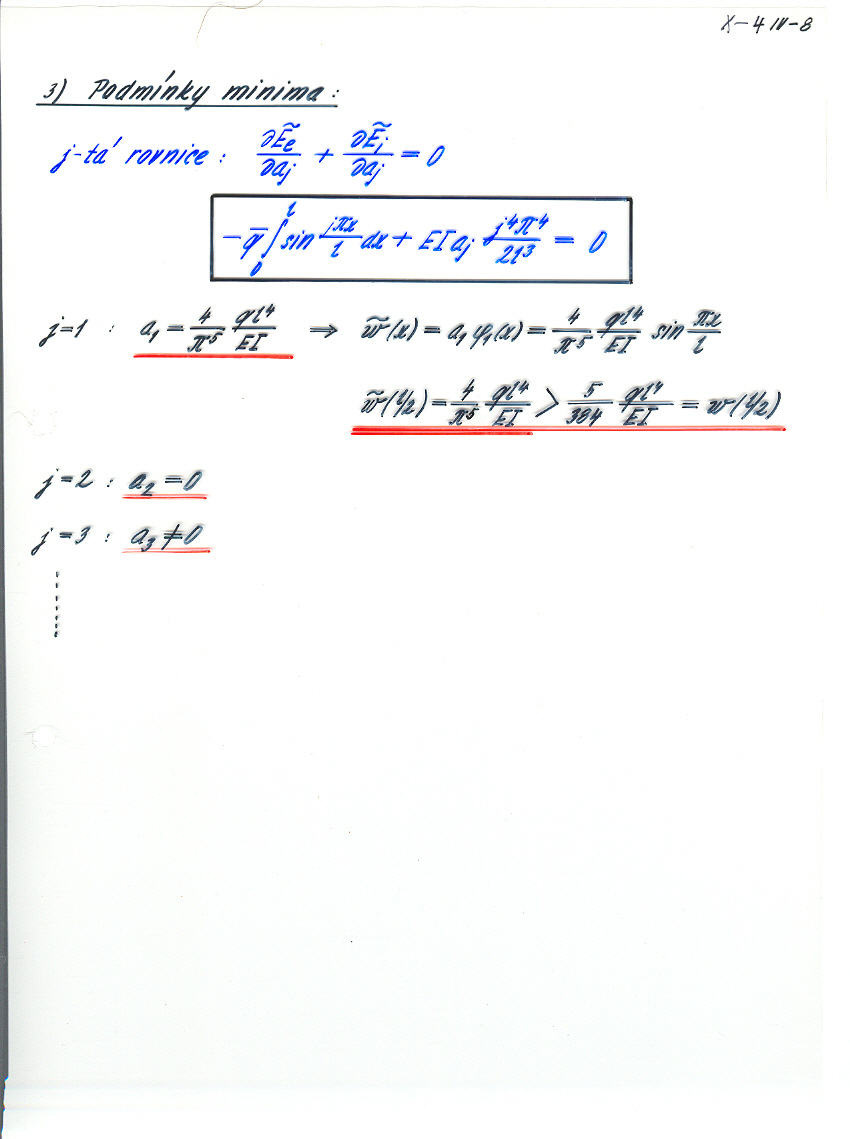 X-4 IV-8
3) Podmínky minima:
j-tá rovnice: ∂Ẽe/∂aj + ∂Ẽi/∂aj = 0
-q̄ ∫₀ˡ sin jπx/l dx + EI aj j⁴π⁴/2l³ = 0
j=1 : a₁ = 4/π⁵ ql⁴/EI ⇒ w̃(x) = a₁φ₁(x) = 4/π⁵ ql⁴/EI sin πx/l
w̃(l/2) = 4/π⁵ ql⁴/EI > 5/384 ql⁴/EI = w(l/2)
j=2 : a₂ = 0
j=3 : a₃ ≠ 0